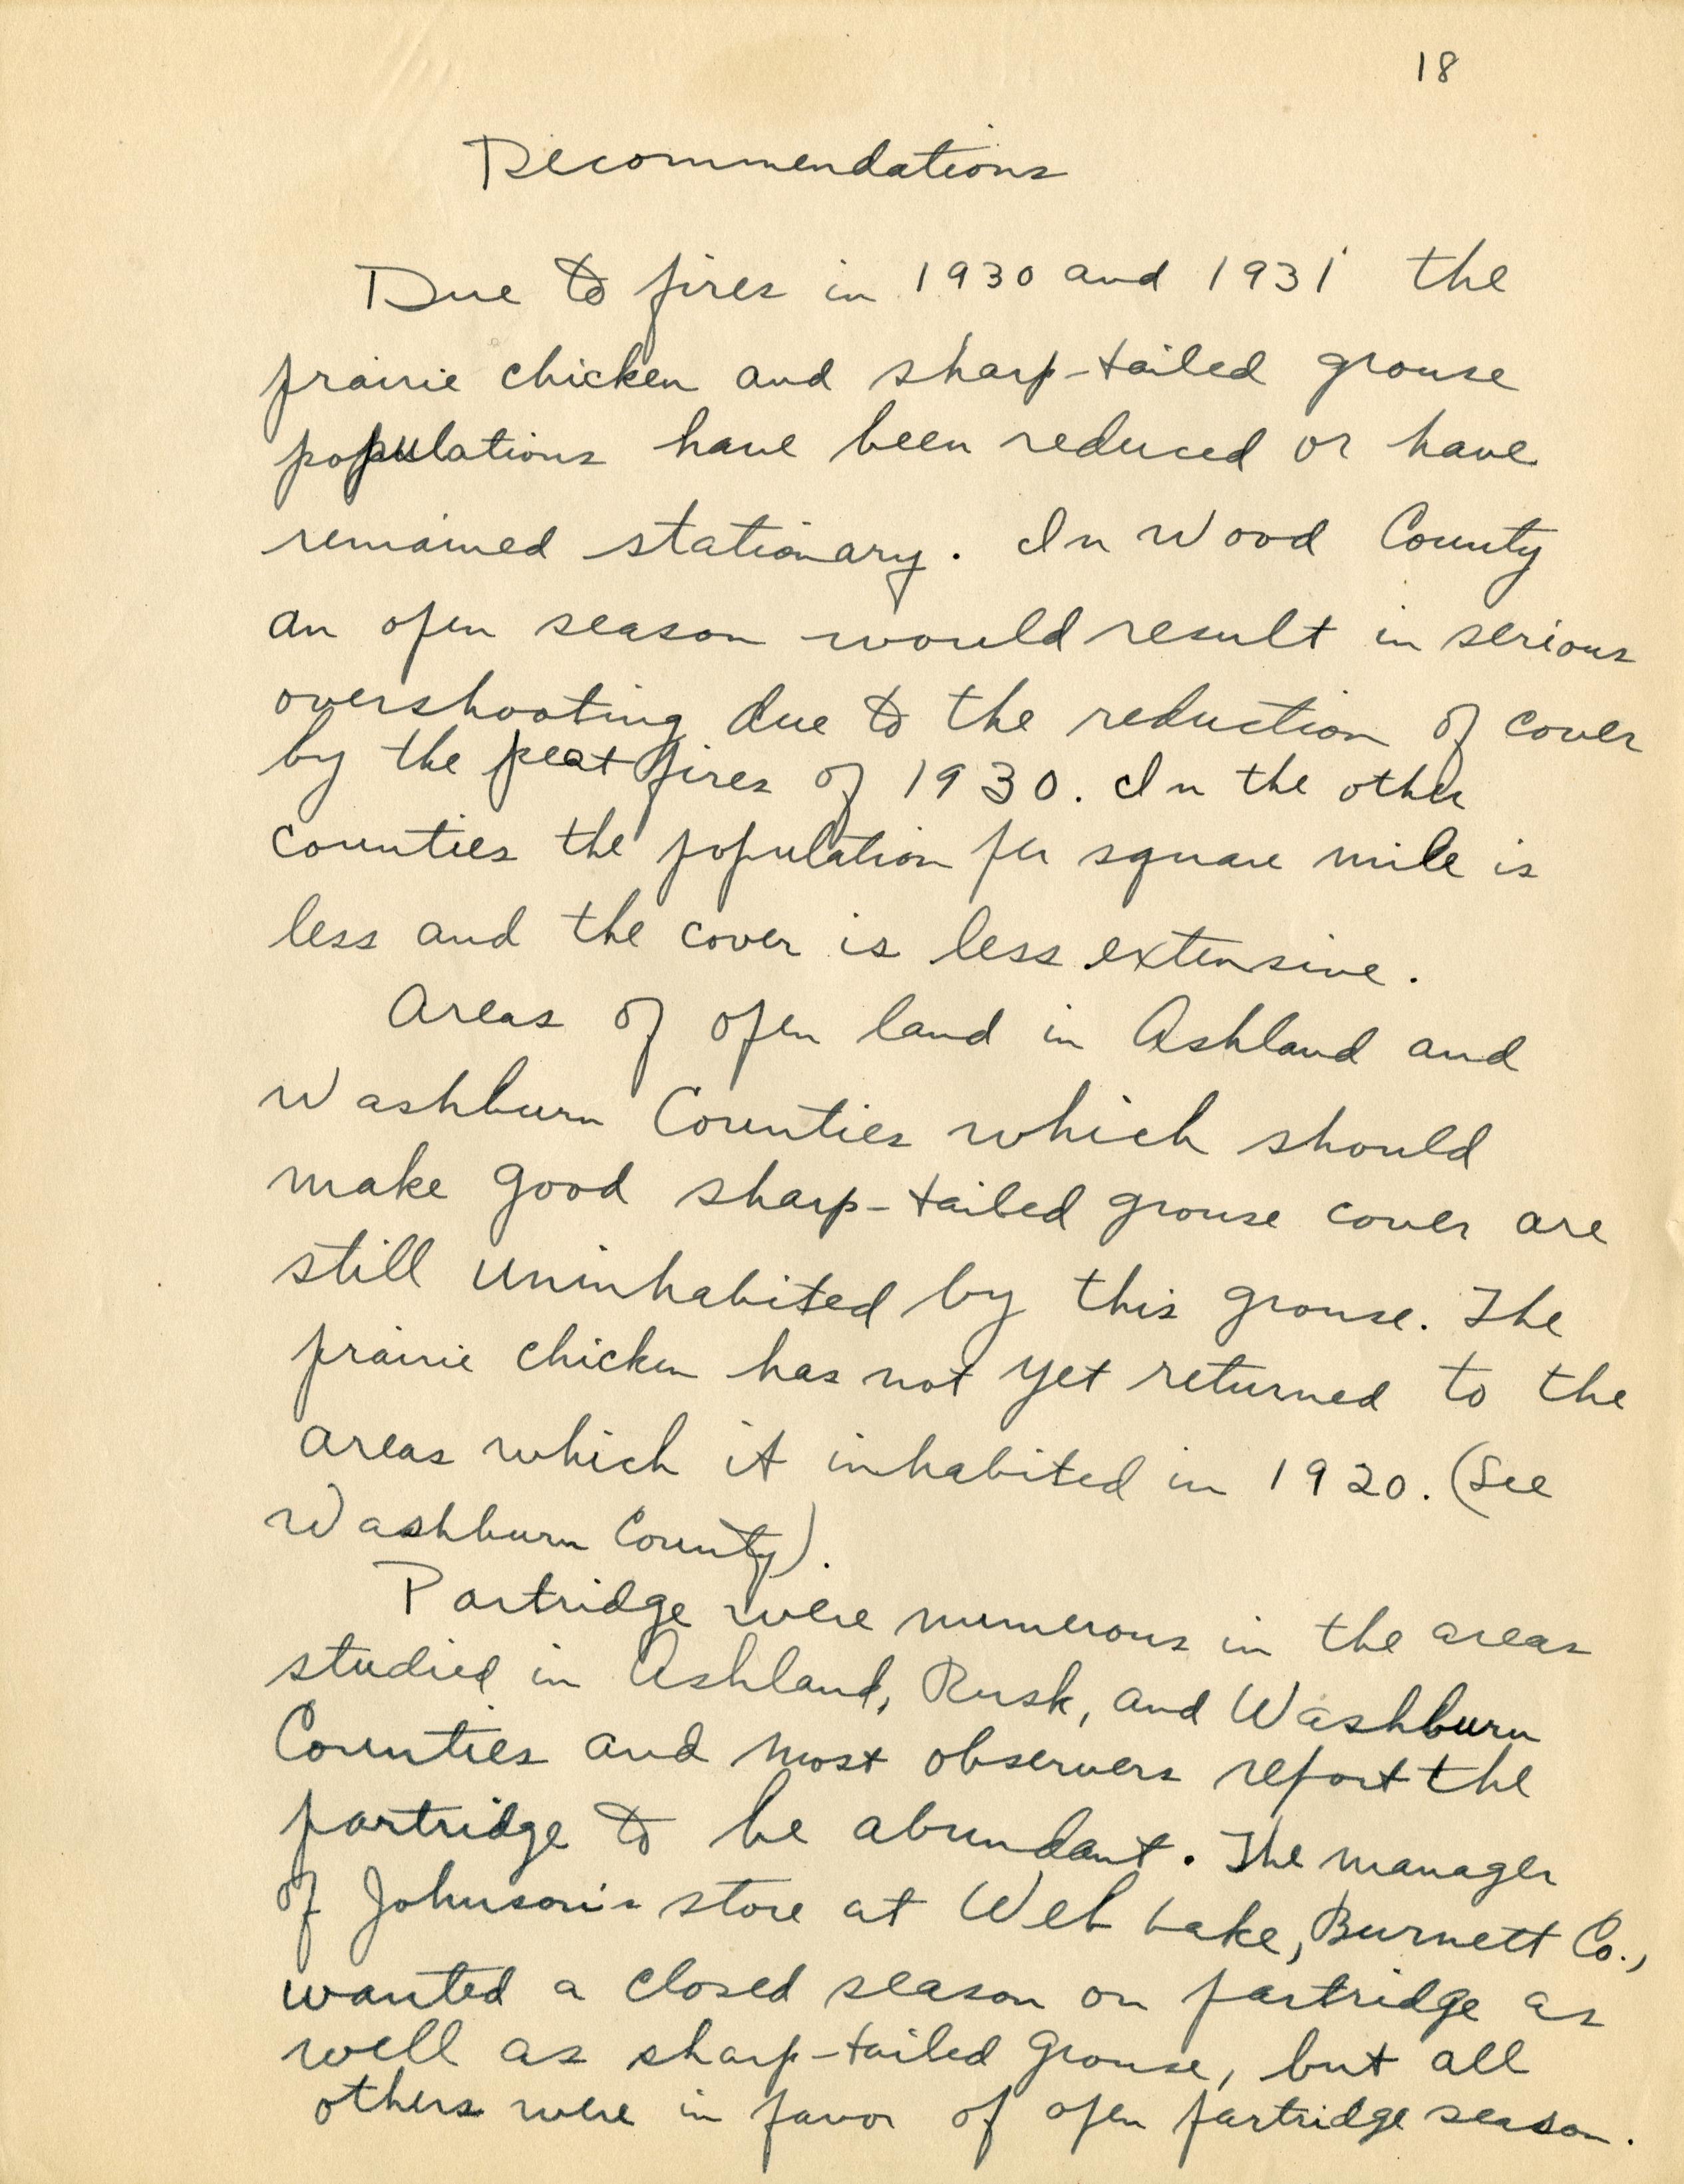 18
Recommendations
Due to fires in 1930 and 1931 the
prairie chicken and sharp-tailed grouse
populations have been reduced or have
remained stationary. In Wood County
an open season would result in serious
overshooting due to the reduction of cover
by the peat fires of 1930. In the other
counties the population per square mile is
less and the cover is less extensive.
Areas of open land in Ashland and
Washburn Counties which should
make good sharp-tailed grouse cover are
still uninhabited by this grouse. The
prairie chicken has not yet returned to the
areas which it inhabited in 1920. (See
Washburn County).
Partridge were numerous in the areas
studied in Ashland, Rusk, and Washburn
Counties and most observers report the
partridge to be abundant. The manager
of Johnson's store at Web Lake, Burnett Co.,
wanted a closed season on partridge as
well as sharp-tailed grouse, but all
others were in favor of open partridge season.